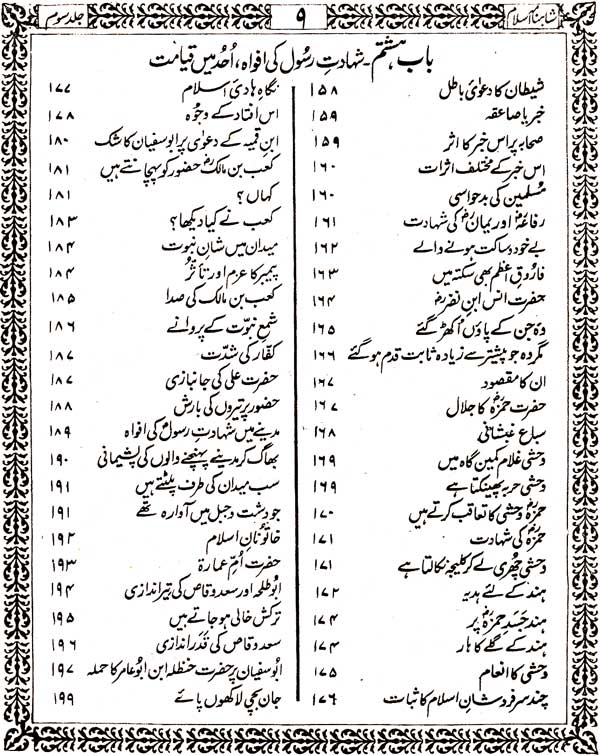 شاہنامہ اسلام ۹ جلد سوم
باب ہشتم - شہادتِ رسولؐ کی افواہ، اُحد میں قیامت
شیطان کا دعویٰ باطل ۱۵۸
خبر یا صاعقہ ۱۵۹
صحابہ پر اس خبر کا اثر ۱۵۹
اس خبر کے مختلف اثرات ۱۶۰
مُسلمین کی بدحواسی ۱۶۰
رفاعہؓ اور یمانؓ کی شہادت ۱۶۱
بے خود و ساکت ہونے والے ۱۶۲
فاروقِ اعظم بھی سکتہ میں ۱۶۳
حضرت انس ابنِ نضرؓ ۱۶۴
وہ جن کے پاؤں اُکھڑ گئے ۱۶۵
مگر وہ جو پیشتر سے زیادہ ثابت قدم ہو گئے ۱۶۶
ان کا مقصود ۱۶۷
حضرت حمزہؓ کا جلال ۱۶۷
سباع غبشانی ۱۶۸
وحشی غلام کمین گاہ میں ۱۶۹
وحشی حربہ پھینکتا ہے ۱۶۹
حمزہؓ وحشی کا تعاقب کرتے ہیں ۱۷۰
حمزہؓ کی شہادت ۱۷۱
وحشی چھُری لے کر کلیجہ نکالتا ہے ۱۷۱
ہند کے لئے ہدیہ ۱۷۲
ہند جسدِ حمزہؓ پر ۱۷۴
ہند کے گلے کا ہار ۱۷۴
وحشی کا انعام ۱۷۵
چند سرفروشانِ اسلام کا ثبات ۱۷۶
نگاہِ ہادیِ اسلام ۱۷۷
اس افتاد کے وجُوہ ۱۷۸
ابنِ قمیہ کے دعویٰ پر ابوسفیان کا شک ۱۸۰
کعب بن مالکؓ حضور کو پہچانتے ہیں ۱۸۱
کہاں؟ ۱۸۱
کعب نے کیا دیکھا؟ ۱۸۳
میدان میں شانِ نبوت ۱۸۴
پیمبر کا عزم اور تاثر ۱۸۴
کعب بن مالک کی صدا ۱۸۵
شمعِ نبوّت کے پروانے ۱۸۶
کفّار کی شدّت ۱۸۷
حضرت علی کی جانبازی ۱۸۷
حضور پر تیروں کی بارش ۱۸۸
مدینے میں شہادتِ رسولؐ کی افواہ ۱۸۹
بھاگ کر مدینے پہنچنے والوں کی پشیمانی ۱۹۰
سب میدان کی طرف پلٹتے ہیں ۱۹۱
جو دشت و جبل میں آوارہ تھے ۱۹۱
خاتونانِ اسلام ۱۹۲
حضرت اُمِّ عمارۃ ۱۹۳
ابُو طلحہ اور سعد وقاص کی تیراندازی ۱۹۴
ترکش خالی ہو جاتے ہیں ۱۹۵
سعد وقاص کی قدراندازی ۱۹۶
ابُوسفیان پر حضرت حنظلہ ابن ابُو عامر کا حملہ ۱۹۷
جان بچی لاکھوں پائے ۱۹۹